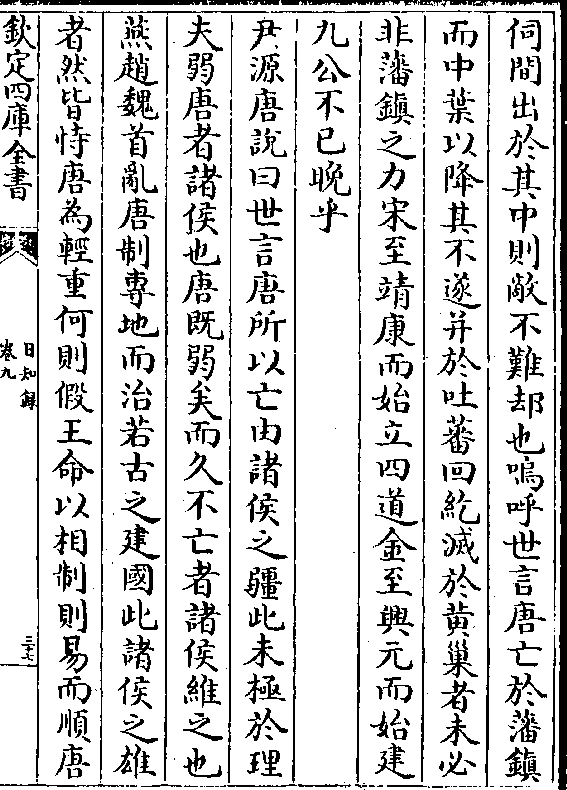 伺間出於其中則敵不難却也嗚呼世言唐亡於藩鎮
而中葉以降其不遂并於吐蕃回紇滅於黄巢者未必
非藩鎮之力宋至靖康而始立四道金至興元而始建
九公不已晚乎
尹源唐說曰世言唐所以亡由諸侯之疆此未極於理
夫弱唐者諸侯也唐既弱矣而久不亡者諸侯維之也
燕趙魏首亂唐制專地而治若古之建國此諸侯之雄
者然皆恃唐為輕重何則假王命以相制則易而順唐
欽定四庫全書
日知録
卷九
三十七